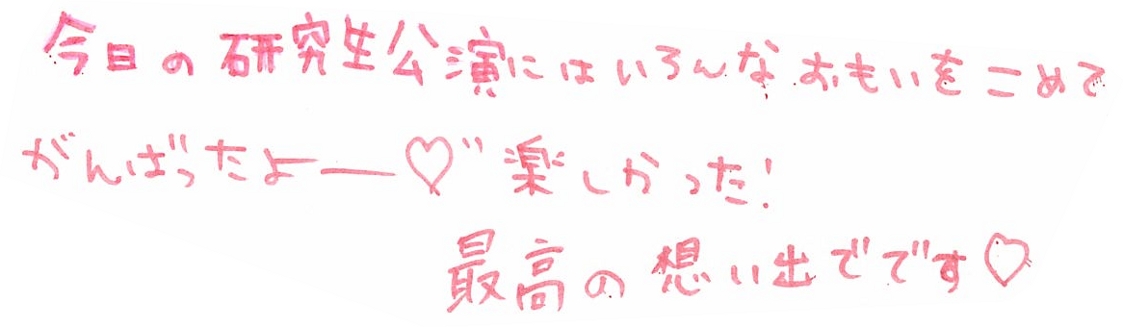 今日の研究生公演にはいろんなおもいをこめて
がんばったよー♡" 楽しかった!
最高の想い出でです♡